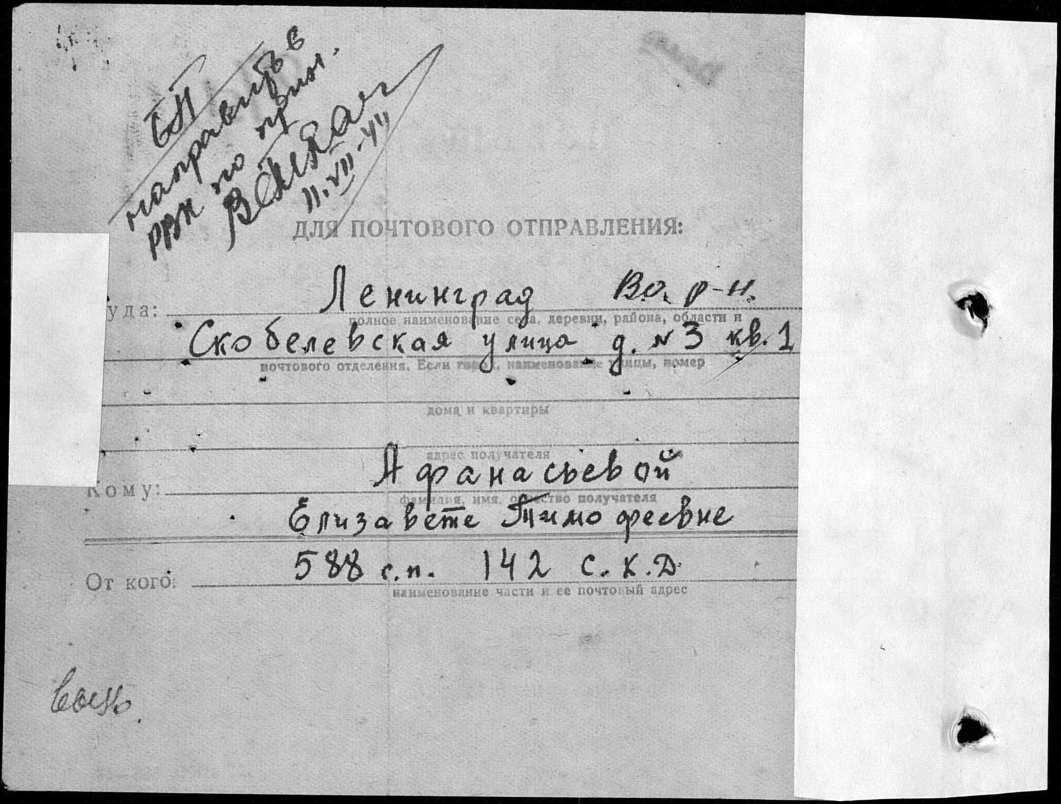 направить в
РВК по прин.
11.VII-44
ДЛЯ ПОЧТОВОГО ОТПРАВЛЕНИЯ:
уда: Ленинград Во. р-н.
полное наименование села, деревни, района, области и
Скобелевская улица д. № 3 кв. 1
почтового отделения. Если город, наименование улицы, номер
дома и квартиры
адрес получателя
Кому: Афанасьевой
фамилия, имя, отчество получателя
Елизавете Тимофеевне
588 с.п. 142 С.К.Д.
От кого:
наименование части и ее почтовый адрес